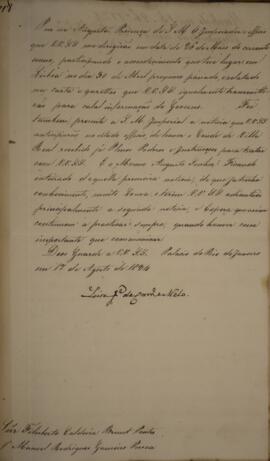 Puz na Augusta Presença de S. M. O Imperador o Officio
que V.V. S.S. me dirigirão na data de 26 de Maio do corrente
anno, participando o acontecimento que teve lugar em
Lisboa no dia 30 de Abril proximo passado, e relatado
na carta e gazetas que V.V. S.S. igualmente transmit
tirão para cabal informação do Governo. Foi
tambem presente a S. M. Imperial a noticia que V.V. S.S.
anteciparão no citado officio de haver o Conde de Villa
Real recebido já Plenos Poderes e Instrucções para tratar
com V.V. S.S. E o Mesmo Augusto Senhor Ficando
inteirado d'aquella primeira noticia, de que já tinha
conhecimento, muito Louva o terem V.V. S.S. adiantado
principalmente a segunda noticia, e Espera que assim
continuem a praticar sempre, quando houver cousa
importante que communicar.
Deos Guarde a V.V. S.S. Palacio do Rio de Janeiro
em 1º de Agosto de 1824
Luiz Jº de Carvº e Mello.
Snr Felisberto Caldeira Brant Pontes
Manoel Rodrigues Gameiro Pessoa